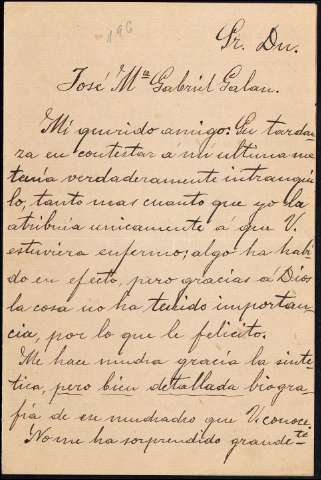 196
Sr. Dn.
José Mª Gabriel Galan.
Mi querido amigo: Su tardan-
za en contestar á mi ultima me
tenia verdaderamente intranqui-
lo, tanto mas cuanto que yo la
atribuia unicamente á que V.
estuviera enfermo; algo ha habi-
do en efecto, pero gracias á Dios
la cosa no ha tenido importan-
cia, por lo que le felicito.
Me hace mucha gracia la sinte-
tica, pero bien detallada biogra-
fia de ese muchacho que V. conoce.
No me ha sorprendido grande-te